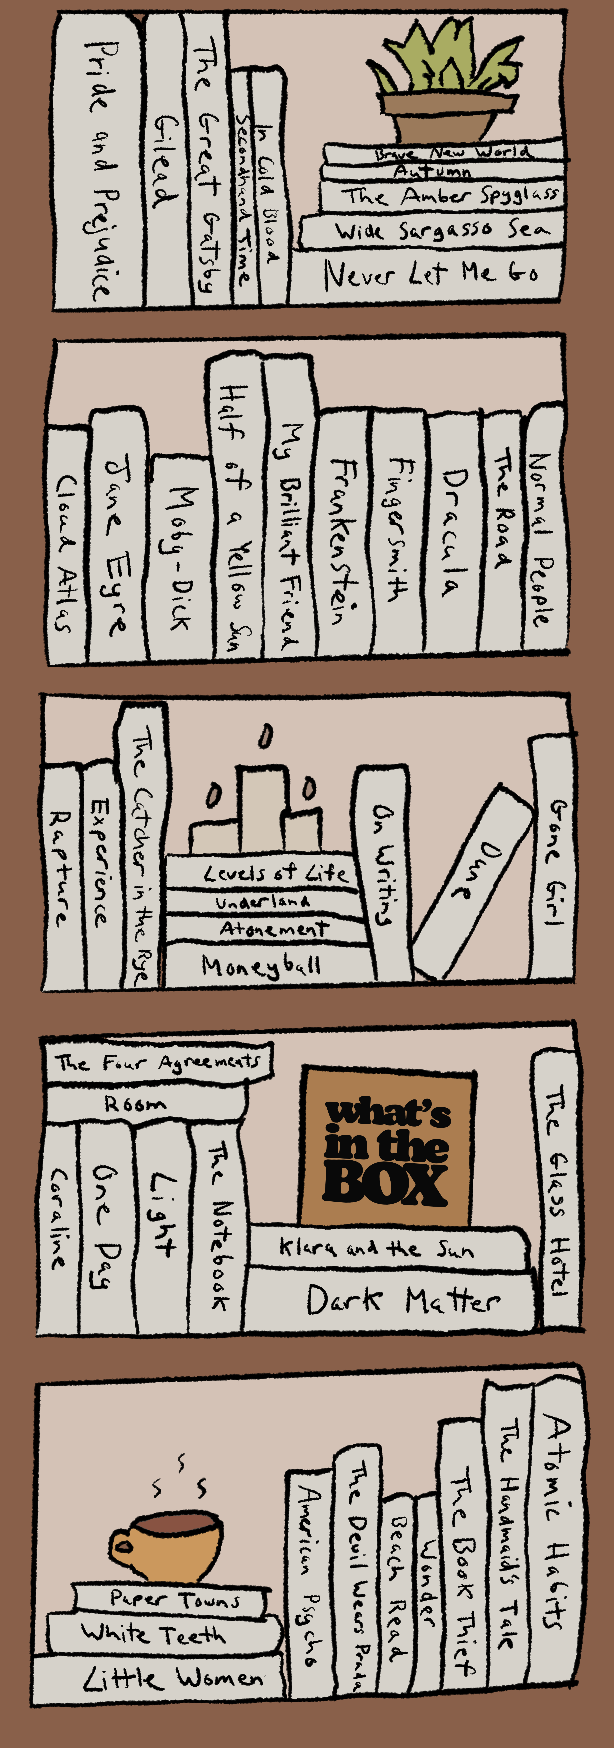 Pride and Prejudice
Gilead
The Great Gatsby
Secondhand Time
In Cold Blood
Brave New World
Autumn
The Amber Spyglass
Wide Sargasso Sea
Never Let Me Go
Cloud Atlas
Jane Eyre
Moby-Dick
Half of a Yellow Sun
My Brilliant Friend
Frankenstein
Fingersmith
Dracula
The Road
Normal People
Rapture
Experience
The Catcher in the Rye
Levels of Life
Underland
Atonement
Moneyball
On Writing
Dune
Gone Girl
The Four Agreements
Room
Coraline
One Day
Light
The Notebook
what's
in the
BOX
Klara and the Sun
Dark Matter
The Glass Hotel
Paper Towns
White Teeth
Little Women
American Psycho
The Devil Wears Prada
Beach Read
Wonder
The Book Thief
The Handmaid's Tale
Atomic Habits